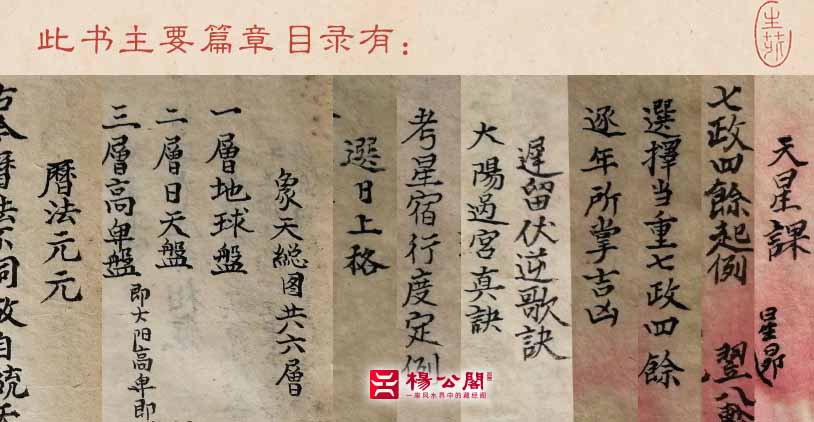 此书主要篇章目录有：
天星課
星昴
七政四餘起例
翌八軫
選擇当重七政四餘
逐年所掌吉凶
遲留伏逆歌訣
太陽過宮真訣
考星宿行度定例
選日上格
象天総图共六層
一層地球盤
二層日天盤
三層高卑盤
即太阳高卑即
曆法元元
古今曆法不同故自統天
楊公閣
一座风水界中的藏经阁